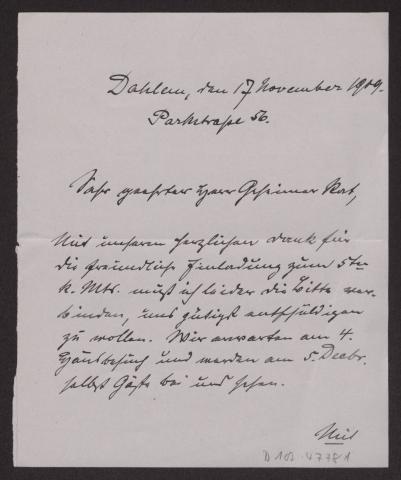 Dahlem, den 17 November 1909.
Parkstraße 56.
Sehr geehrter Herr Geheimer Rat,
Mit unserem herzlichen Dank für
die freundliche Einladung zum 5ten
k. Mts. muß ich leider die Bitte ver-
binden, uns gütigst entschuldigen
zu wollen. Wir erwarten am 4.
Hausbesuch und werden am 5. Decbr.
selbst Gäste bei uns sehen.
Mit
D 102. 4778 1